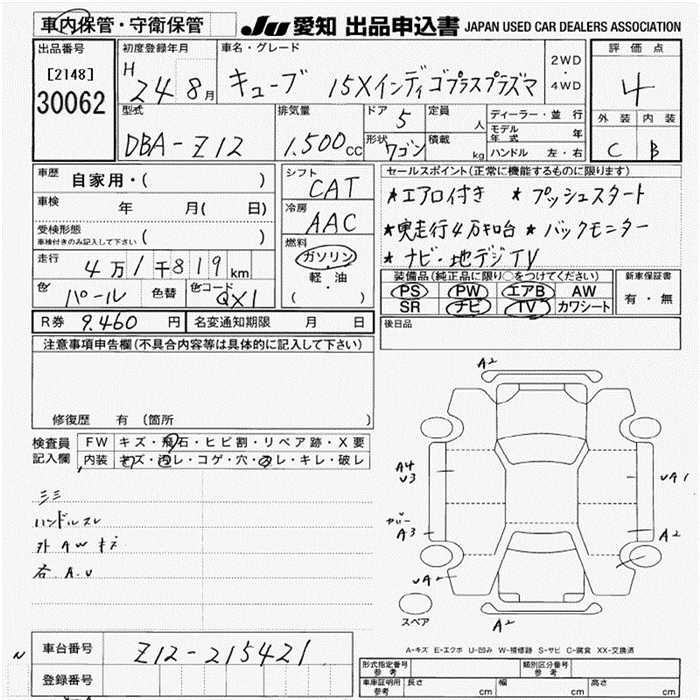 車内保管・守衛保管 JU 愛知 出品申込書 JAPAN USED CAR DEALERS ASSOCIATION
出品番号 [2148] 30062
初度登録年月 H 24 8月
車名・グレード キューブ 15Xインディゴプラスプラズマ 2WD・4WD
評価点 4
外装 内装
C B
型式 DBA-Z12
排気量 1.500cc
ドア 5 定員 人
形状 ワゴン 積載 kg
ディーラー・並行
モデル年式 年
ハンドル 左・右
車歴 自家用・( )
車検 年 月( 日)
受検形態 車検付きのみ記入して下さい ( )
走行 4万1千819km
色 パール 色替 色コード QX1
シフト CAT
冷房 AAC
燃料 ガソリン 軽・油 ( )
セールスポイント(正常に機能するものに限ります)
★エアロ付き ★プッシュスタート
★実走行4万キロ台 ★バックモニター
★ナビ・地デジTV
装備品(純正品に限り○をつけてください) 新車保証書
PS PW エアB AW 有・無
SR ナビ TV カワシート
R券 9.460円 名変通知期限 月 日
後日品
注意事項申告欄(不具合内容等は具体的に記入して下さい)
修復歴 有 (箇所 )
検査員記入欄 FW キズ・飛石・ヒビ割・リペア跡・X要
内装 キズ・汚レ・コゲ・穴・スレ・キレ・破レ
ハンドルスレ
外 AW キズ
右 A.U
A2
A4
U3
UA1
カバー
A3
A2
UA2
スペア
A2
A-キズ E-エクボ U-凹み W-補修跡 S-サビ C-腐食 XX-交換済
N 車台番号 Z12-215421
登録番号
形式指定番号 参考 類別区分番号 参考
車庫証明用 参考 長さ cm 幅 cm 高さ cm